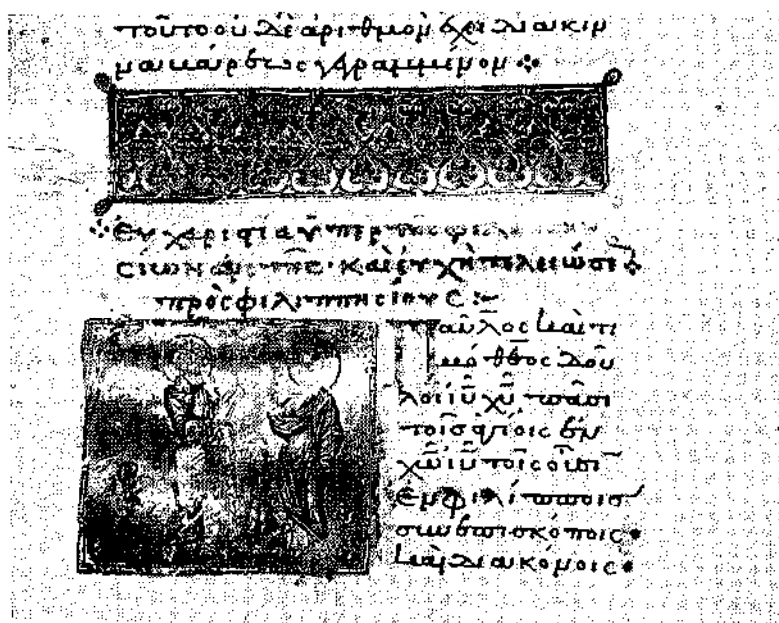 τοῦτο οὐδὲ ἀριθμὸν ἔχει διὰ κιν
ναβάρεως γεγραμμένον
Εὐχαριστία ὑπὲρ τῆς φιλ
σίων καὶ εὐχὴ τελειώσε
πρὸς φιλιππησίους :-
Παῦλος καὶ τι
μόθεος δοῦ
λοι ἰῦ χῦ πᾶσι
τοῖς ἁγίοις ἐν
χῶ ἰῦ τοῖς οὖσι
ἐν φιλίπποις
σὺν ἐπισκόποις
καὶ διακόνοις